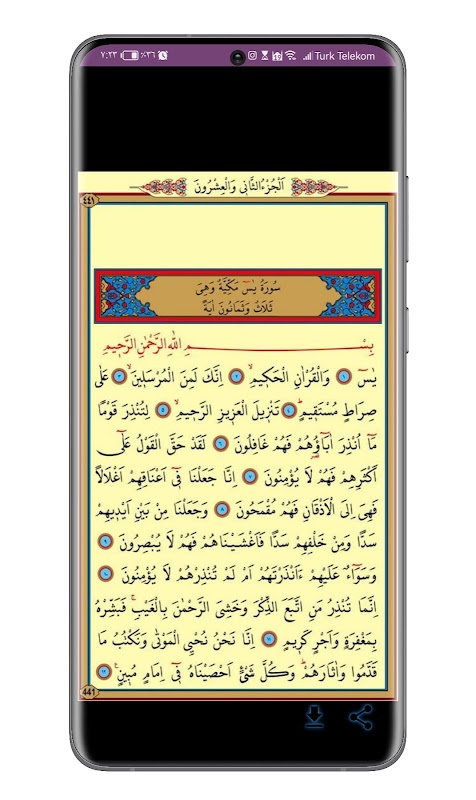 ٧:٢٣ ٪٣٦ Turk Telekom
اَلْجُزْءُ الثَّانِي وَالْعِشْرُونَ
٤٤١
سُورَةُ يٰسٓ مَكِّيَّةٌ وَهِيَ
ثَلَاثٌ وَثَمَانُونَ اٰيَةً
بِسْمِ اللّٰهِ الرَّحْمٰنِ الرَّحٖيمِ
يٰسٓ ١ وَالْقُرْاٰنِ الْحَكٖيمِۙ ٢ اِنَّكَ لَمِنَ الْمُرْسَلٖينَۙ ٣ عَلٰى
صِرَاطٍ مُسْتَقٖيمٍۜ ٤ تَنْزٖيلَ الْعَزٖيزِ الرَّحٖيمِۙ ٥ لِتُنْذِرَ قَوْمًا
مَٓا اُنْذِرَ اٰبَٓاؤُهُمْ فَهُمْ غَافِلُونَ ٦ لَقَدْ حَقَّ الْقَوْلُ عَلٰٓى
اَكْثَرِهِمْ فَهُمْ لَا يُؤْمِنُونَ ٧ اِنَّا جَعَلْنَا فٖٓي اَعْنَاقِهِمْ اَغْلَالًا
فَهِيَ اِلَى الْاَذْقَانِ فَهُمْ مُقْمَحُونَ ٨ وَجَعَلْنَا مِنْ بَيْنِ اَيْدٖيهِمْ
سَدًّا وَمِنْ خَلْفِهِمْ سَدًّا فَاَغْشَيْنَاهُمْ فَهُمْ لَا يُبْصِرُونَ ٩
وَسَوَٓاءٌ عَلَيْهِمْ ءَاَنْذَرْتَهُمْ اَمْ لَمْ تُنْذِرْهُمْ لَا يُؤْمِنُونَ ١٠
اِنَّمَا تُنْذِرُ مَنِ اتَّبَعَ الذِّكْرَ وَخَشِيَ الرَّحْمٰنَ بِالْغَيْبِۚ فَبَشِّرْهُ
بِمَغْفِرَةٍ وَاَجْرٍ كَرٖيمٍ ١١ اِنَّا نَحْنُ نُحْيِ الْمَوْتٰى وَنَكْتُبُ مَا
قَدَّمُوا وَاٰثَارَهُمْۜ وَكُلَّ شَيْءٍ اَحْصَيْنَاهُ فٖٓي اِمَامٍ مُبٖينٍۚ ١٢
441